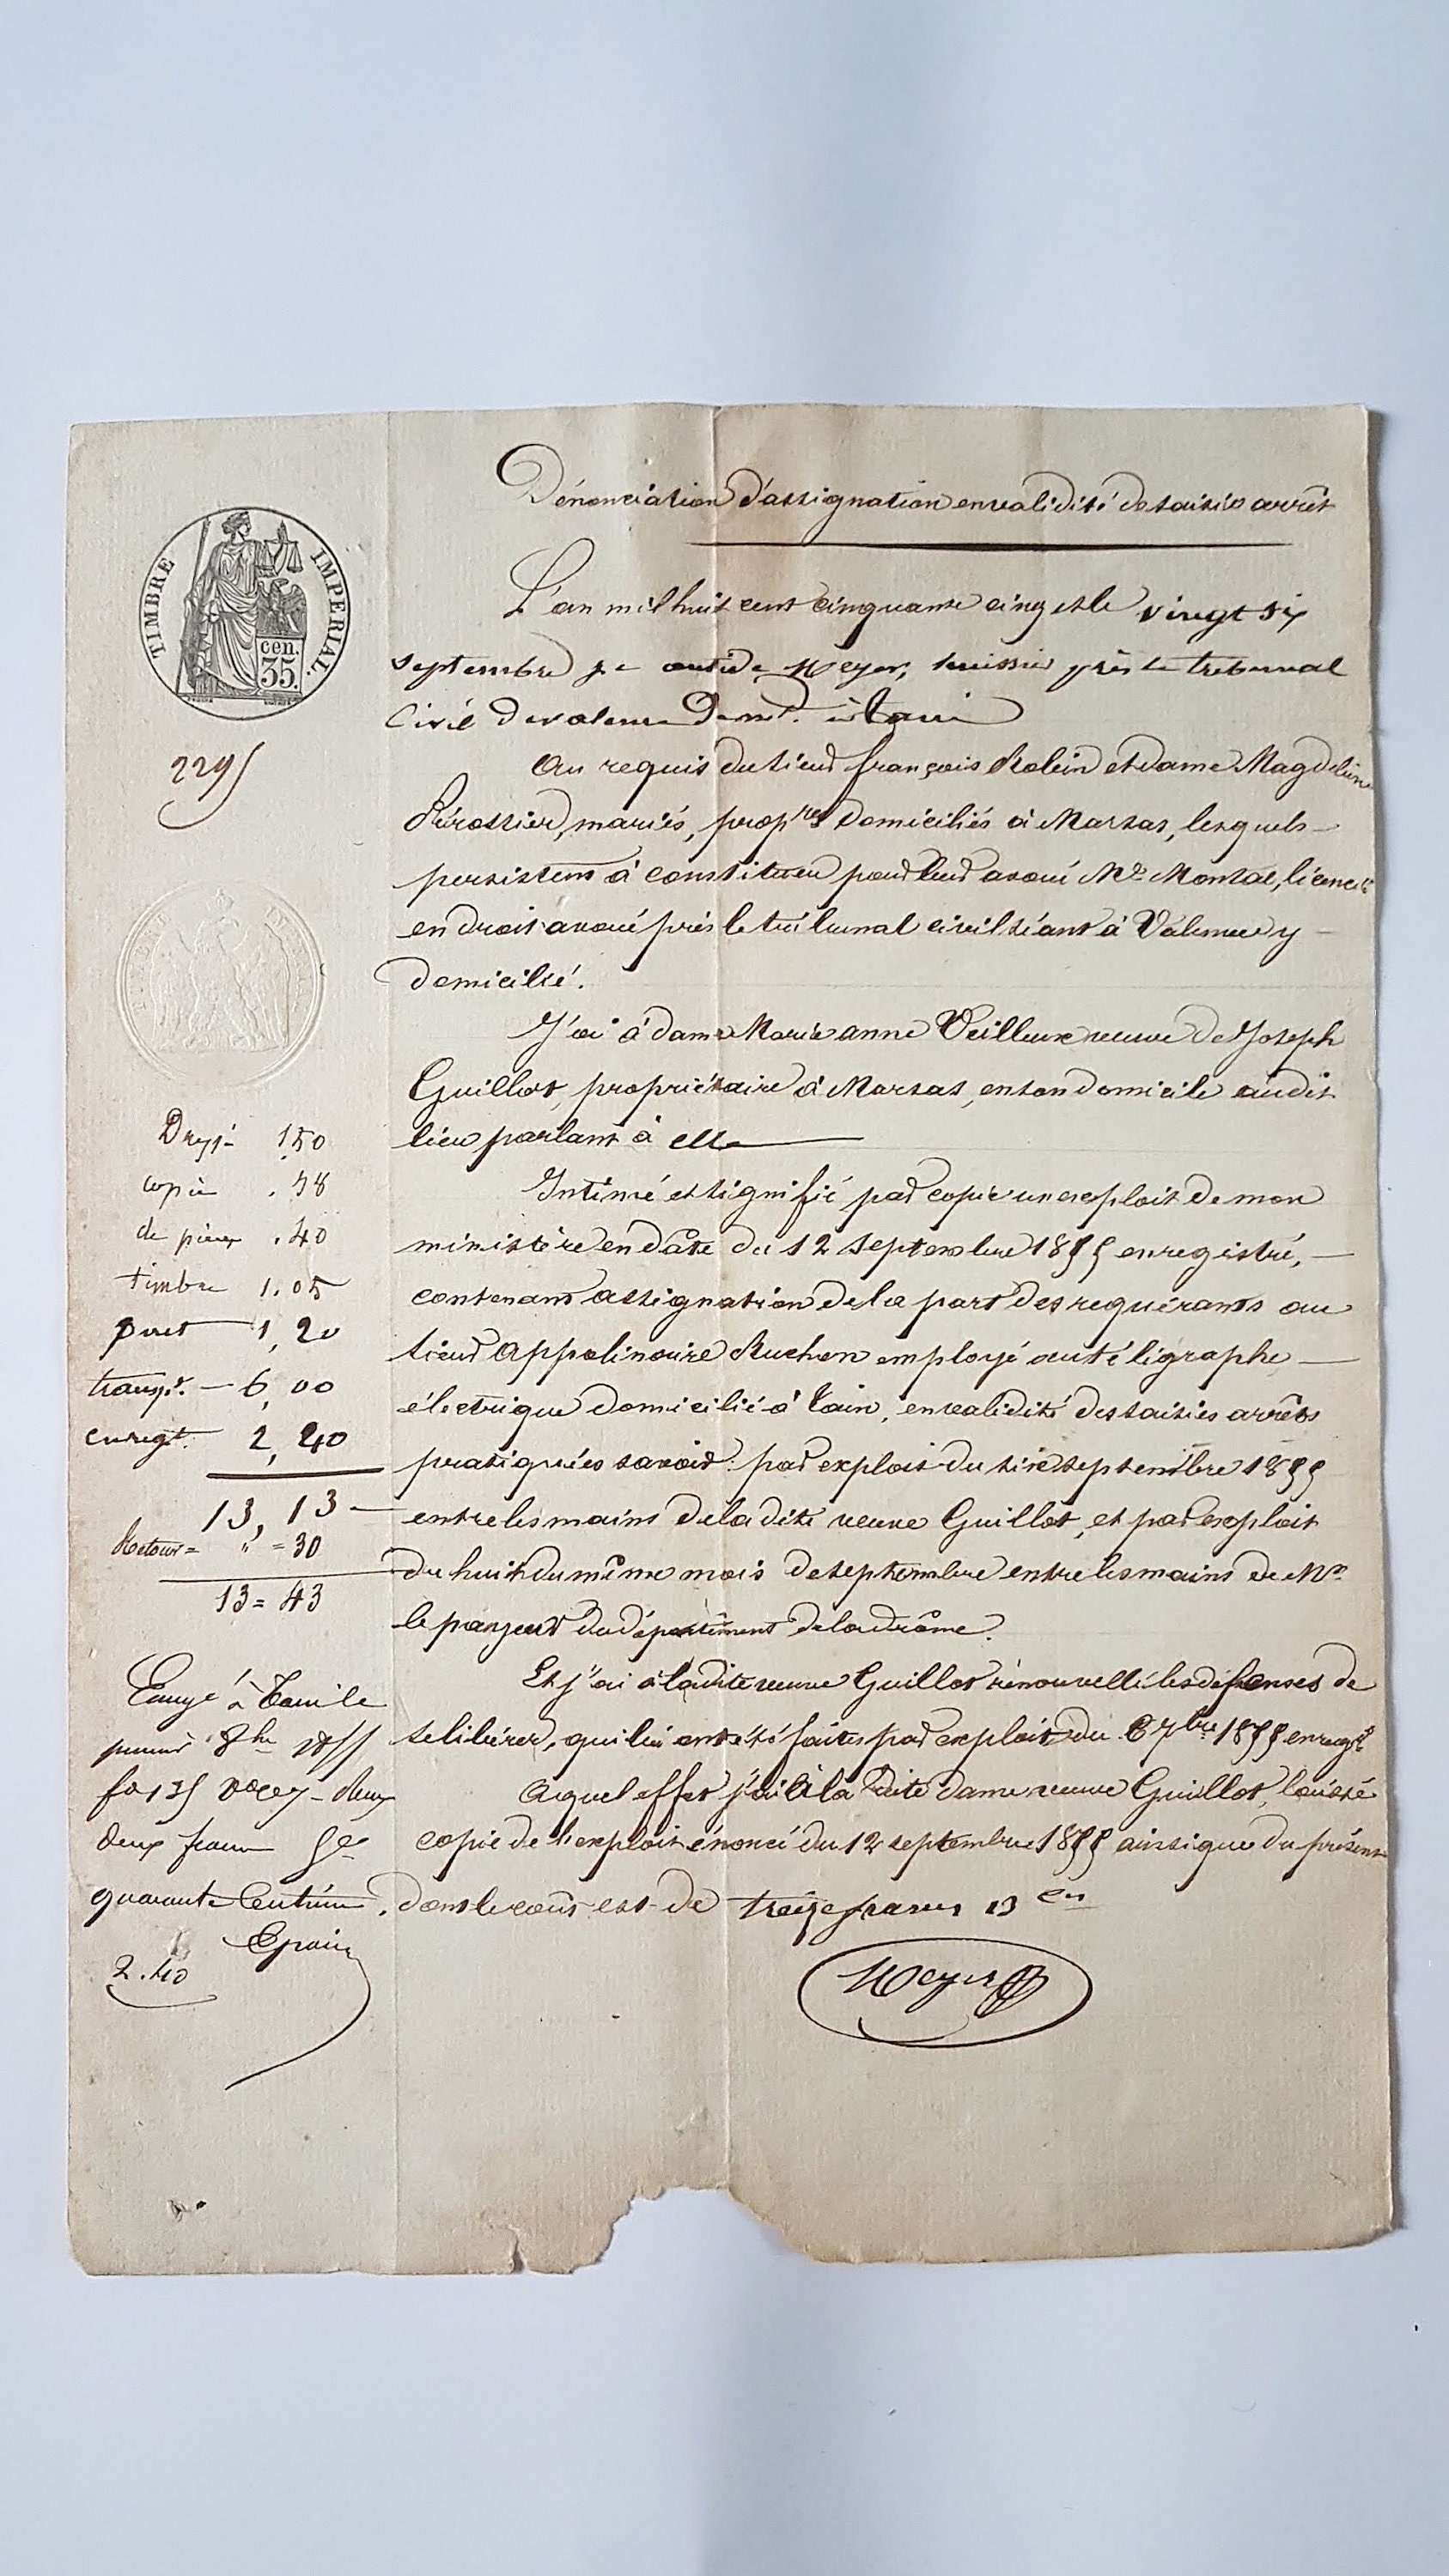 Dénonciation d'assignation en validité de saisie arrêt
TIMBRE IMPERIAL
cen.
35.
L'an mil huit cent cinquante cinq et le vingt six
septembre je Meyer, huissier près le tribunal
civil de valence à tain
2295
Au requis du sieur françois Robin et dame Magdeleine
mariés, prop.res domiciliés à Marsas, lesquels
persistent à constituer pour leur avoué Me licencié
en droit avoué près le tribunal civil séant à Valence y
domicilié.
J'ai à dame Marie anne Veilleux veuve de Joseph
Guillot, propriétaire à Marsas, en son domicile audit
lieu parlant à elle
Intimé et signifié par copie un exploit de mon
ministère en date du 12 septembre 1855 enregistré,
contenant assignation de la part des requérants au
sieur Appolinaire Ruchon employé au téligraphe
électrique domicilié à tain, en validité des saisies arrêts
pratiquées savoir: par exploit du six septembre 1855
entre les mains de la dite veuve Guillot, et par exploit
du huit du même mois de septembre entre les mains de Mr
le payeur du département de la drôme.
Et j'ai à la dite veuve Guillot rénouvellé les défenses de
se libérer, qui lui ont été faites par exploit du 6 7bre 1855 enregt
Aquel effet j'ai à la dite dame veuve Guillot, laissé
copie de l'exploit énoncé du 12 septembre 1855 ainsi que du présent
dont le coût est de treize francs 13 ces
Meyer
1.50
copie . 58
de pièces . 40
timbre 1.05
port 1,20
transpt. 6,00
enregt. 2,40
13,13
Retour = " = 30
13 = 43
à Tain le
premier 8bre 1855
deux francs
quarante Centimes.
Epain
2.40